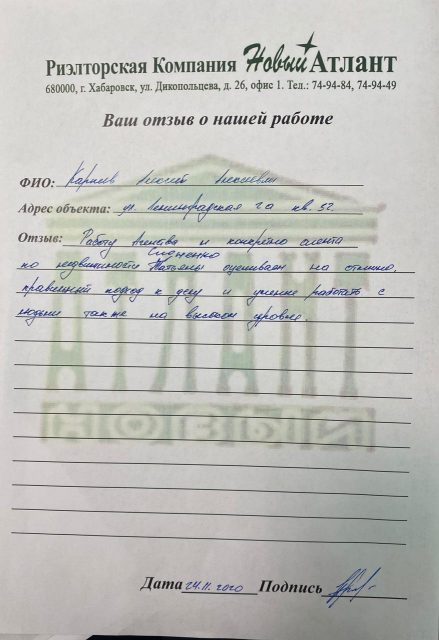 Риэлторская Компания Новый Атлант
680000, г. Хабаровск, ул. Дикопольцева, д. 26, офис 1. Тел.: 74-94-84, 74-94-49
Ваш отзыв о нашей работе
ФИО: Алексей Алексеевич
Адрес объекта: ул. Ленинградская кв. 32.
Отзыв: Работу Агенства и конкретно агента
по недвижимости Татьяны оцениваем на отлично,
правильный подход к делу и умение работать с
людьми также на высоком уровне.
Дата 24.11.2020 Подпись